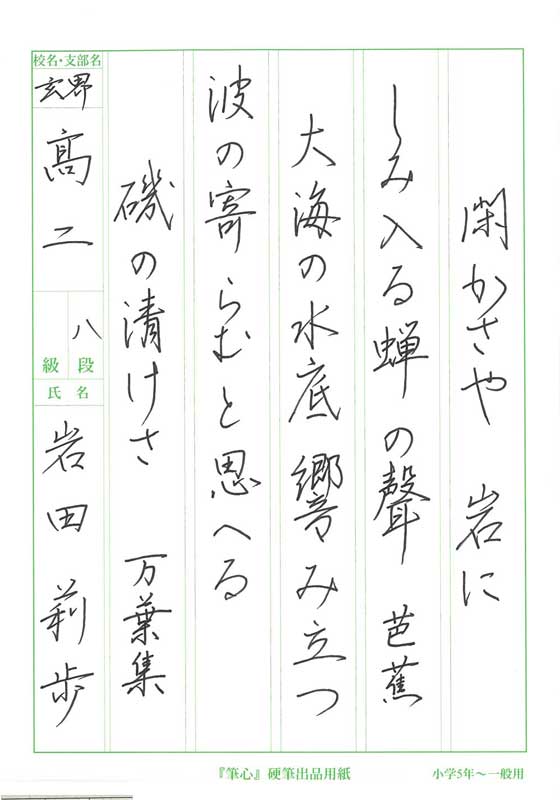 閑かさや　岩に
しみ入る蝉の聲　芭蕉
大海の水底響み立つ
波の寄らむと思へる
磯の清けさ　万葉集
校名・支部名
玄界
高二
八
級　段
氏　名
岩田莉歩
『筆心』硬筆出品用紙
小学5年～一般用